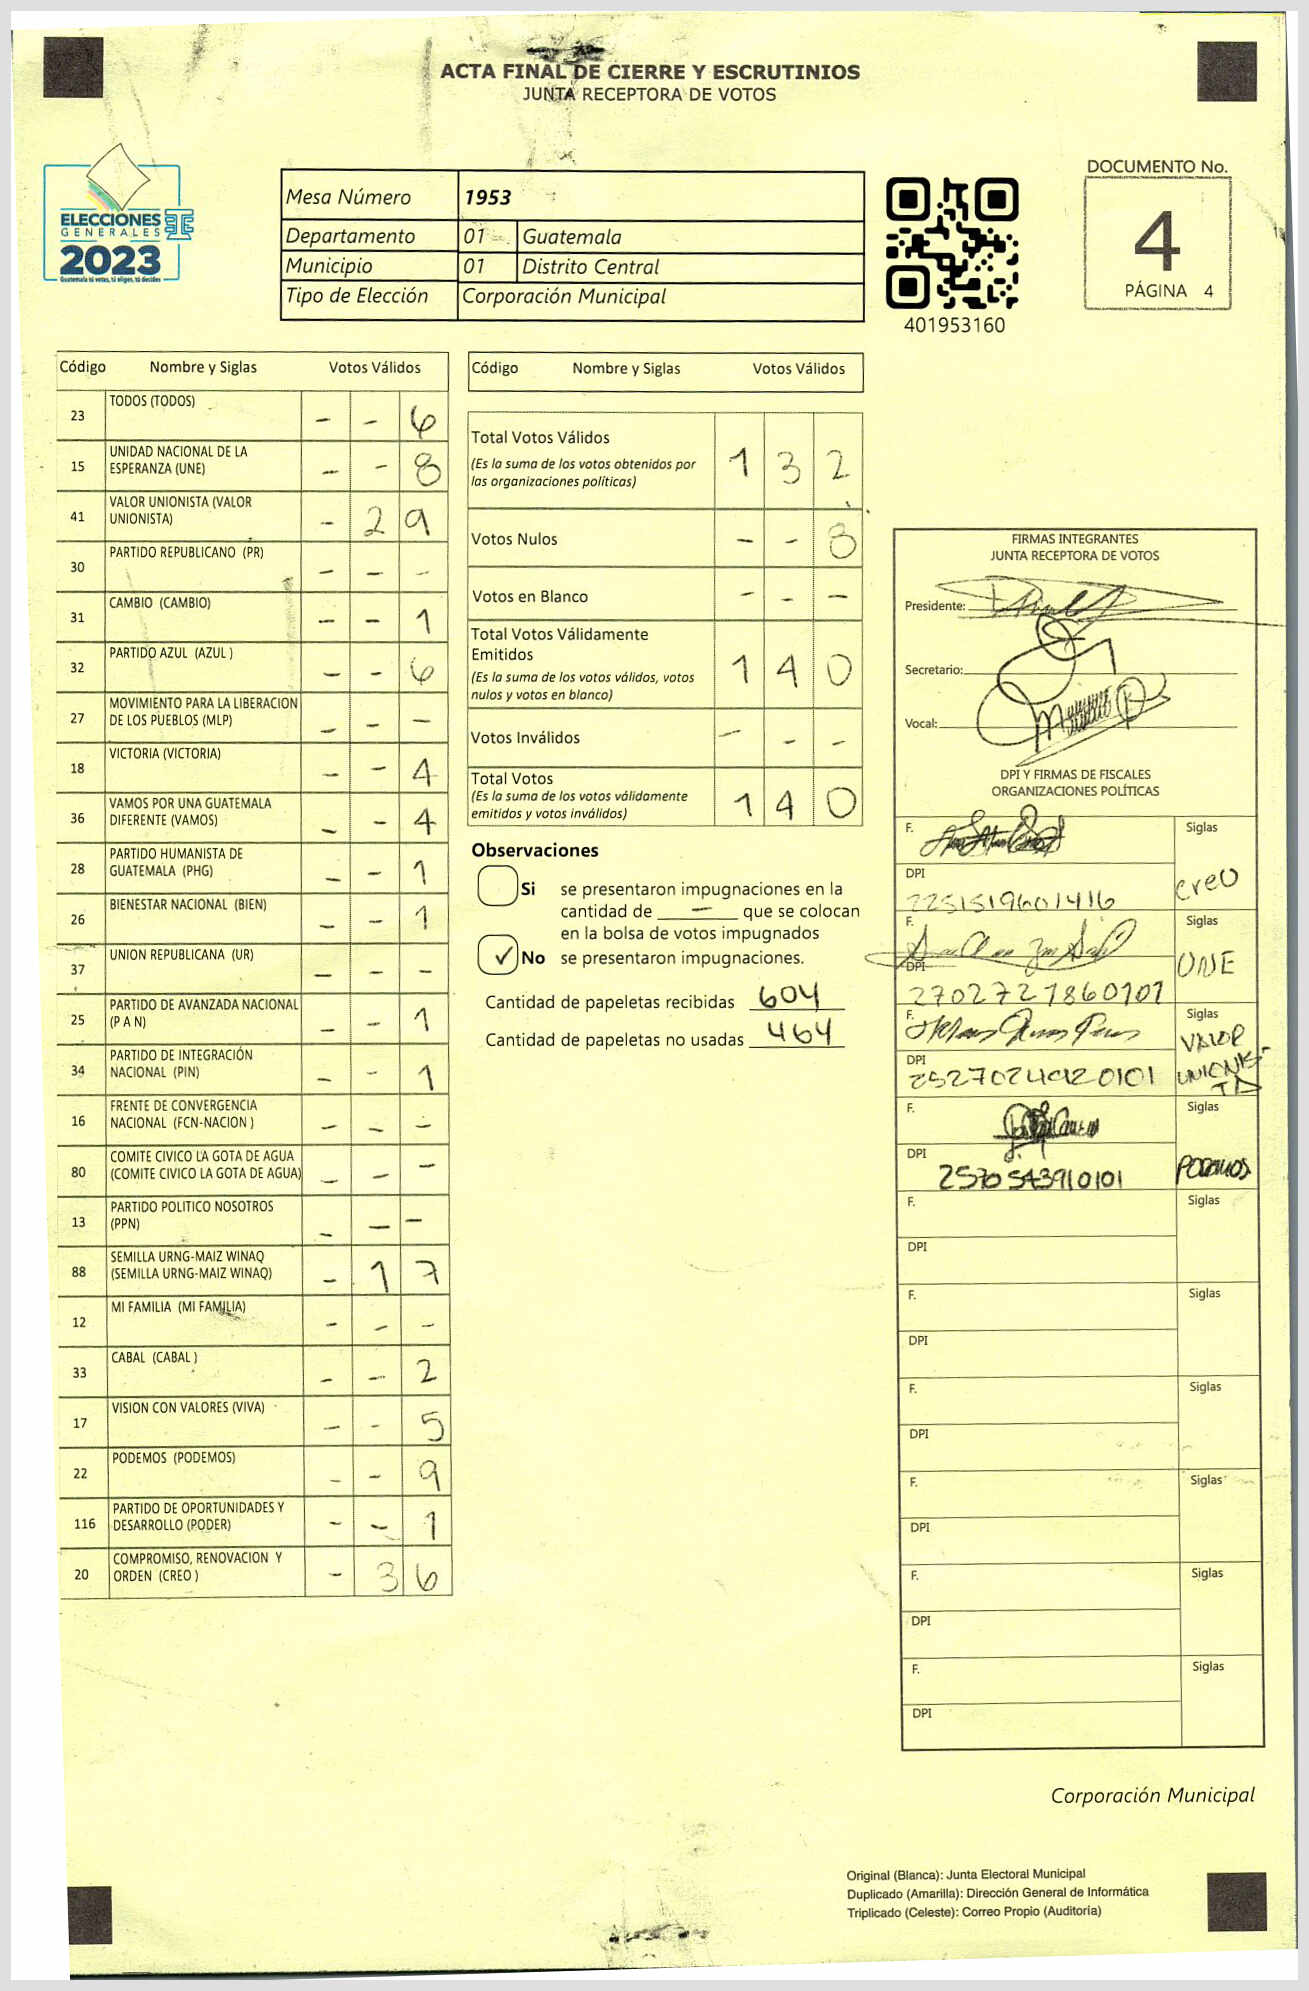 ACTA FINAL DE CIERRE Y ESCRUTINIOS
JUNTA RECEPTORA DE VOTOS
ELECCIONES
GENERALES
2023
Guatemala tú votas, tú eliges, tú decides
Mesa Número 1953
Departamento 01 Guatemala
Municipio 01 Distrito Central
Tipo de Elección Corporación Municipal
401953160
DOCUMENTO No.
4
PÁGINA 4
Código Nombre y Siglas Votos Válidos
23 TODOS (TODOS) - - 6
15 UNIDAD NACIONAL DE LA ESPERANZA (UNE) - - 8
41 VALOR UNIONISTA (VALOR UNIONISTA) - 2 9
30 PARTIDO REPUBLICANO (PR) - - -
31 CAMBIO (CAMBIO) - - 1
32 PARTIDO AZUL (AZUL ) - - 6
27 MOVIMIENTO PARA LA LIBERACION DE LOS PUEBLOS (MLP) - - -
18 VICTORIA (VICTORIA) - - 4
36 VAMOS POR UNA GUATEMALA DIFERENTE (VAMOS) - - 4
28 PARTIDO HUMANISTA DE GUATEMALA (PHG) - - 1
26 BIENESTAR NACIONAL (BIEN) - - 1
37 UNION REPUBLICANA (UR) - - -
25 PARTIDO DE AVANZADA NACIONAL (P A N) - - 1
34 PARTIDO DE INTEGRACIÓN NACIONAL (PIN) - - 1
16 FRENTE DE CONVERGENCIA NACIONAL (FCN-NACION ) - - -
80 COMITE CIVICO LA GOTA DE AGUA (COMITE CIVICO LA GOTA DE AGUA) - - -
13 PARTIDO POLITICO NOSOTROS (PPN) - - -
88 SEMILLA URNG-MAIZ WINAQ (SEMILLA URNG-MAIZ WINAQ) - 1 7
12 MI FAMILIA (MI FAMILIA) - - -
33 CABAL (CABAL ) - - 2
17 VISION CON VALORES (VIVA) - - 5
22 PODEMOS (PODEMOS) - - 9
116 PARTIDO DE OPORTUNIDADES Y DESARROLLO (PODER) - - 1
20 COMPROMISO, RENOVACION Y ORDEN (CREO ) - 3 6
Código Nombre y Siglas Votos Válidos
Total Votos Válidos 1 3 2
(Es la suma de los votos obtenidos por
las organizaciones políticas)
Votos Nulos - - 8
Votos en Blanco - - -
Total Votos Válidamente
Emitidos 1 4 0
(Es la suma de los votos válidos, votos
nulos y votos en blanco)
Votos Inválidos - - -
Total Votos 1 4 0
(Es la suma de los votos válidamente
emitidos y votos inválidos)
Observaciones
Si se presentaron impugnaciones en la
cantidad de - que se colocan
en la bolsa de votos impugnados
✓ No se presentaron impugnaciones.
Cantidad de papeletas recibidas 604
Cantidad de papeletas no usadas 464
FIRMAS INTEGRANTES
JUNTA RECEPTORA DE VOTOS
Presidente:
Secretario:
Vocal:
DPI Y FIRMAS DE FISCALES
ORGANIZACIONES POLÍTICAS
F. Siglas
DPI creo
2251519601416
F. Siglas
DPI UNE
2702727860101
F. Siglas
DPI VALOR UNIONISTA
2527024920101
F. Siglas
DPI PODEMOS
2570543910101
F. Siglas
DPI
F. Siglas
DPI
F. Siglas
DPI
F. Siglas
DPI
F. Siglas
DPI
F. Siglas
DPI
Corporación Municipal
Original (Blanca): Junta Electoral Municipal
Duplicado (Amarilla): Dirección General de Informática
Triplicado (Celeste): Correo Propio (Auditoría)